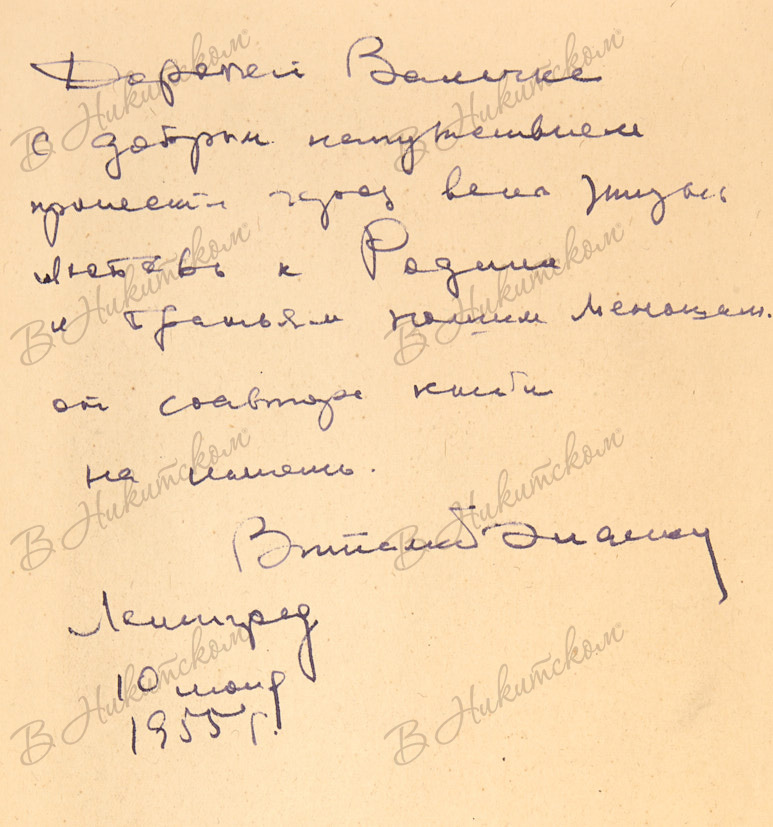 Дорогой Валичке
с добрым напутствием
пронести через всю жизнь
любовь к Родине
и братьям нашим меньшим.
от соавтора книги
на память.
Виталий
Ленинград
10 июня
1955 г.
В Никитском
В Никитском
В Никитском
В Никитском
В Никитском
В Никитском
В Никитском
В Никитском